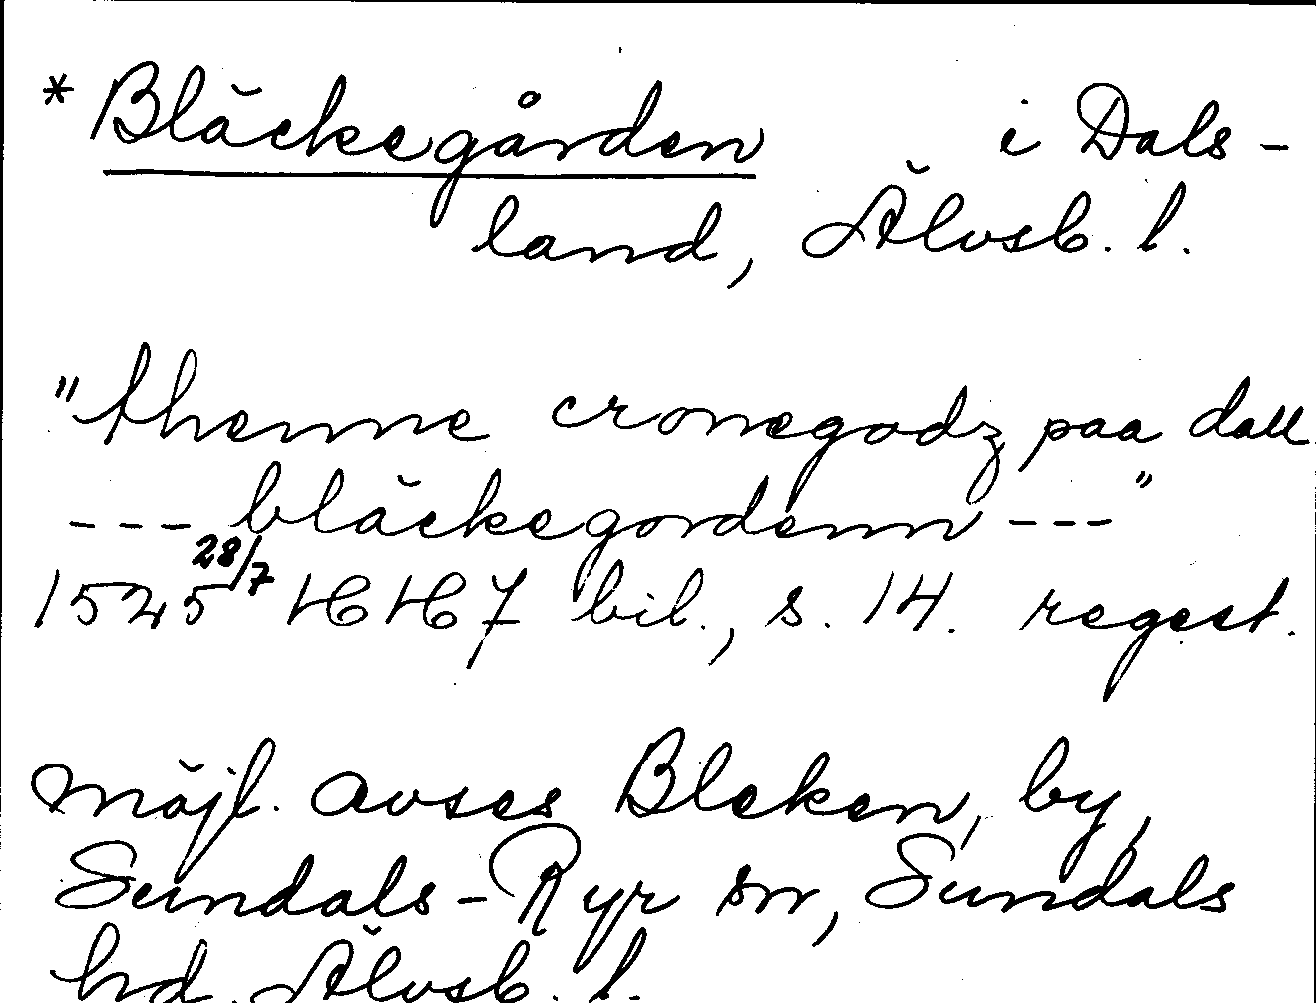 * Bläckegården i Dals-
land, Älvsb. l.
"thenne cronegodz paa dall
--- bläckegordenn ---"
1525 28/7 HH 7 bil., s. 14. regest.
möjl. avses Bleken, by,
Sundals-Ryr sn, Sundals
hd, Älvsb. l.